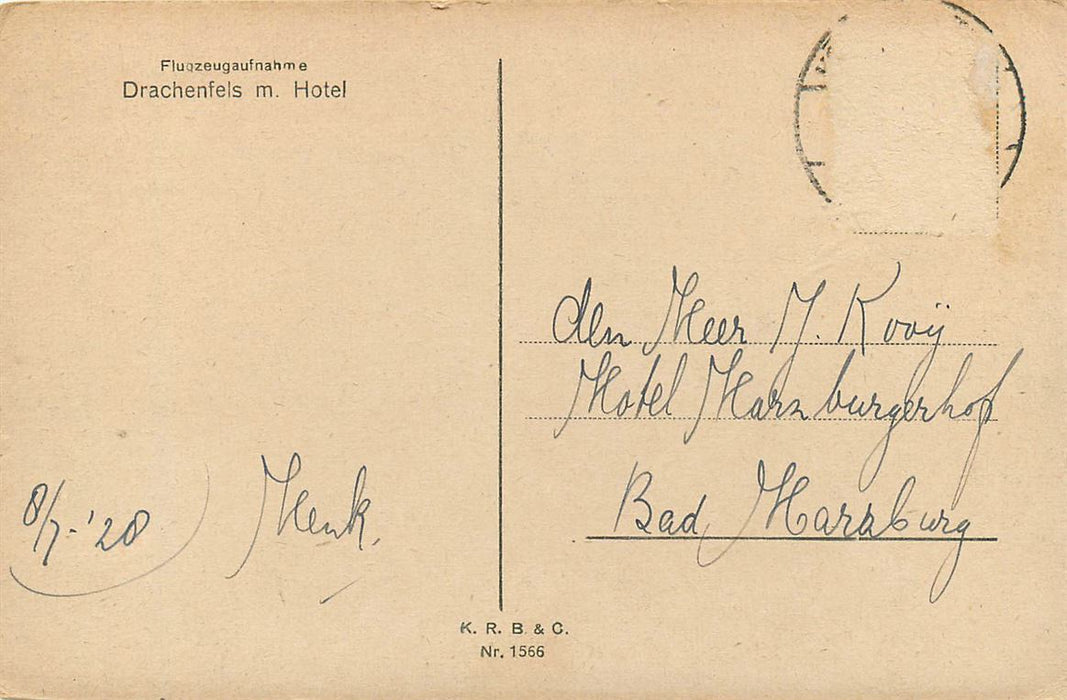 Flugzeugaufnahme
Drachenfels m. Hotel
den Heer J. Kooÿ
Hotel Harzburgerhof
Bad Harzburg
8/7-'28 Henk.
K. R. B. & C.
Nr. 1566